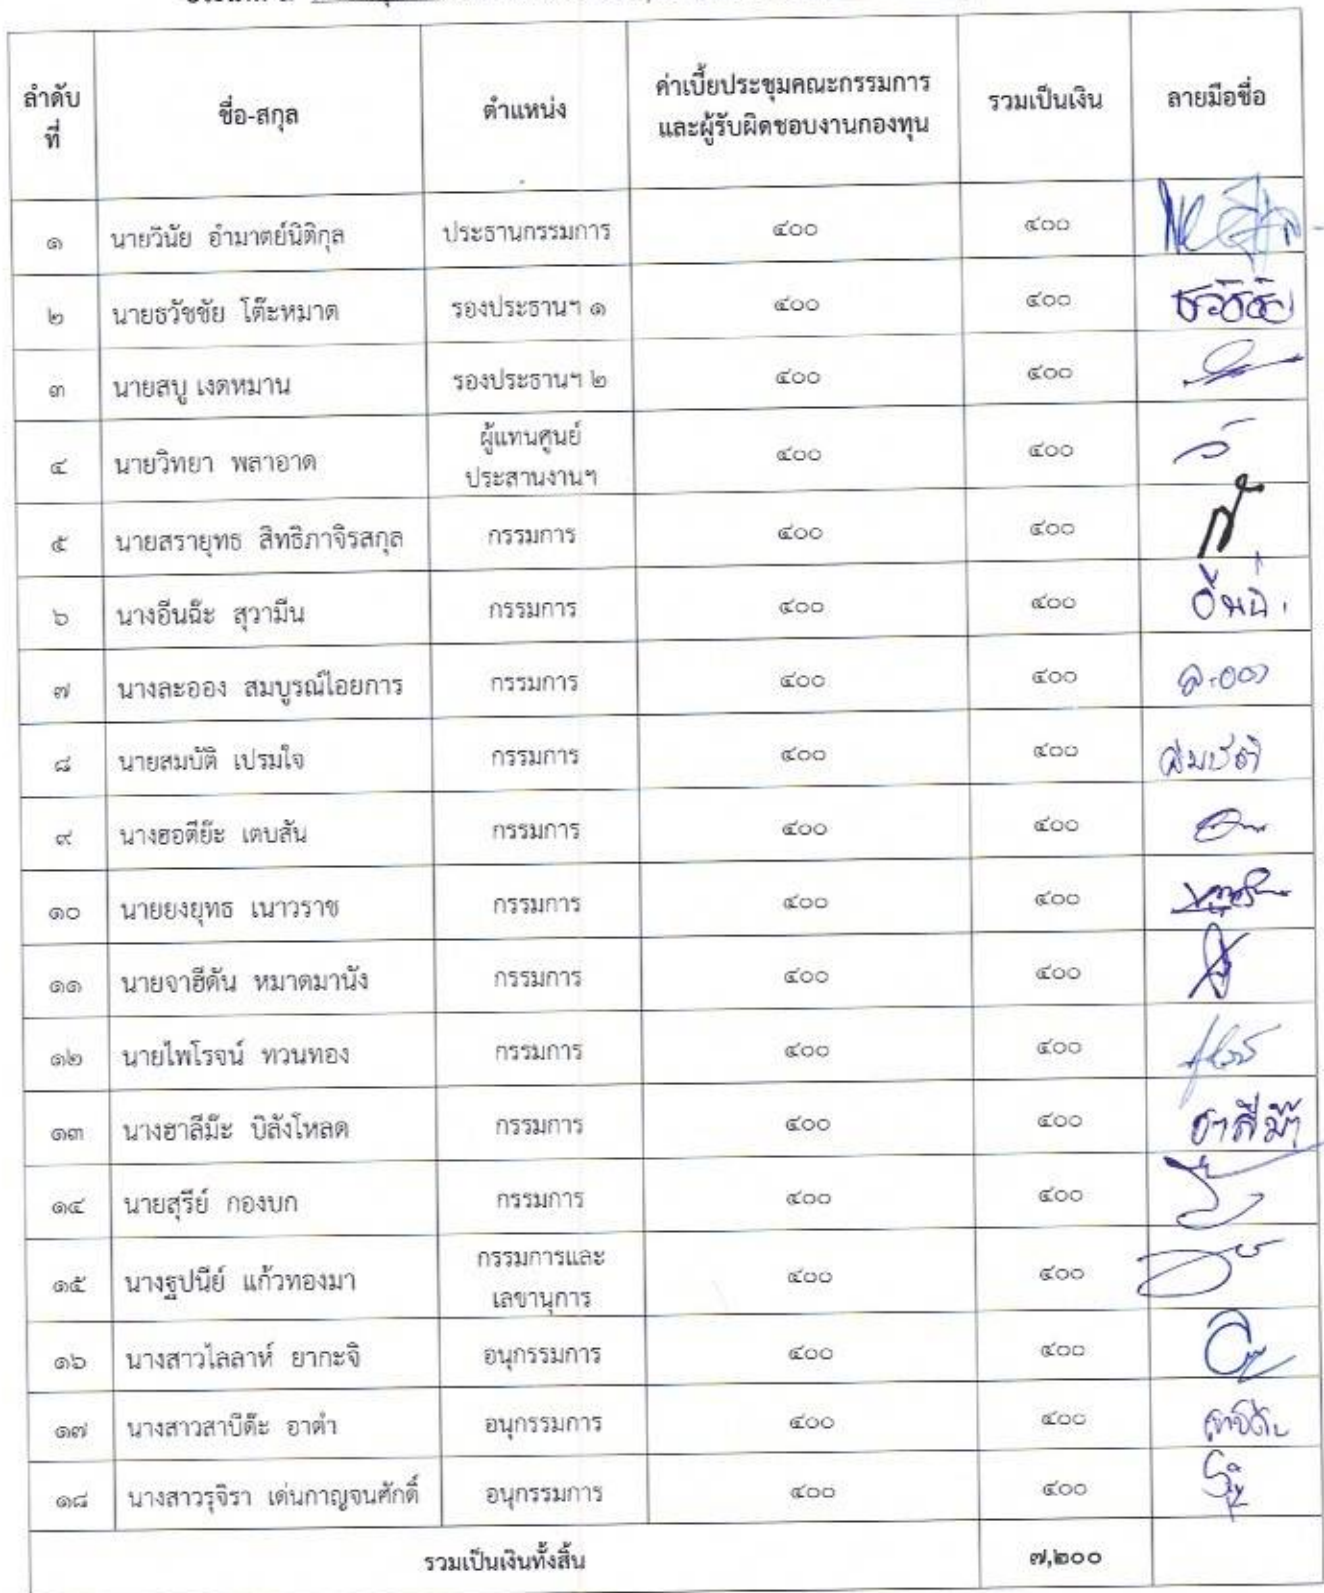 ลำดับที่ ชื่อ-สกุล ตำแหน่ง ค่าเบี้ยประชุมคณะกรรมการและผู้รับผิดชอบงานกองทุน รวมเป็นเงิน ลายมือชื่อ
๑ นายวินัย อำมาตย์นิติกุล ประธานกรรมการ ๔๐๐ ๔๐๐
๒ นายธวัชชัย โต๊ะหมาด รองประธานฯ ๑ ๔๐๐ ๔๐๐ ธวัชชัย
๓ นายสบู เงดหมาน รองประธานฯ ๒ ๔๐๐ ๔๐๐
๔ นายวิทยา พลาอาด ผู้แทนศูนย์ประสานงานฯ ๔๐๐ ๔๐๐
๕ นายสรายุทธ สิทธิภาจิรสกุล กรรมการ ๔๐๐ ๔๐๐
๖ นางอีนฉ๊ะ สุวามีน กรรมการ ๔๐๐ ๔๐๐
๗ นางละออง สมบูรณ์ไอยการ กรรมการ ๔๐๐ ๔๐๐ ละออง
๘ นายสมบัติ เปรมใจ กรรมการ ๔๐๐ ๔๐๐ สมบัติ
๙ นางฮอดีย๊ะ เตบสัน กรรมการ ๔๐๐ ๔๐๐
๑๐ นายยงยุทธ เนาวราช กรรมการ ๔๐๐ ๔๐๐
๑๑ นายจาฮีดัน หมาดมานัง กรรมการ ๔๐๐ ๔๐๐
๑๒ นายไพโรจน์ ทวนทอง กรรมการ ๔๐๐ ๔๐๐
๑๓ นางฮาลีม๊ะ บิลังโหลด กรรมการ ๔๐๐ ๔๐๐ ฮาลีม๊ะ
๑๔ นายสุรีย์ กองบก กรรมการ ๔๐๐ ๔๐๐
๑๕ นางฐปนีย์ แก้วทองมา กรรมการและเลขานุการ ๔๐๐ ๔๐๐
๑๖ นางสาวไลลาห์ ยากะจิ อนุกรรมการ ๔๐๐ ๔๐๐
๑๗ นางสาวสาบีด๊ะ อาดำ อนุกรรมการ ๔๐๐ ๔๐๐
๑๘ นางสาวรุจิรา เด่นกาญจนศักดิ์ อนุกรรมการ ๔๐๐ ๔๐๐
รวมเป็นเงินทั้งสิ้น ๗,๒๐๐